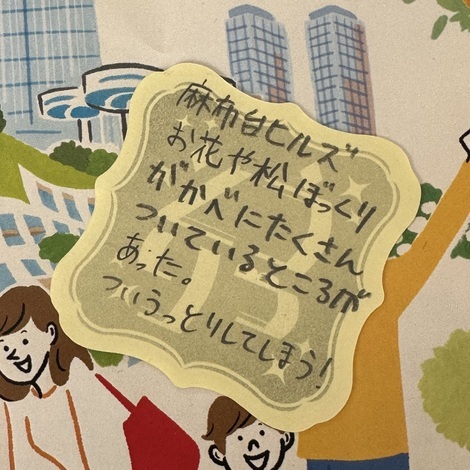 麻布台ヒルズ
お花や松ぼっくり
がかべにたくさん
ついているところが
あった。
ついうっとりしてしまう!